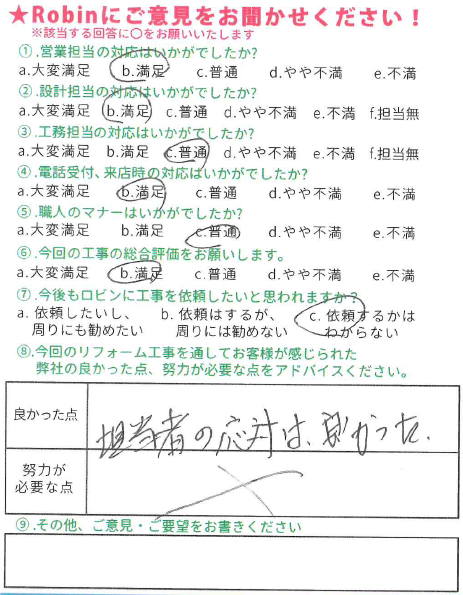 ★Robinにご意見をお聞かせください！
※該当する回答に〇をお願いいたします
①.営業担当の対応はいかがでしたか?
a.大変満足 b.満足 c.普通 d.やや不満 e.不満
②.設計担当の対応はいかがでしたか?
a.大変満足 b.満足 c.普通 d.やや不満 e.不満 f.担当無
③.工務担当の対応はいかがでしたか?
a.大変満足 b.満足 c.普通 d.やや不満 e.不満 f.担当無
④.電話受付、来店時の対応はいかがでしたか?
a.大変満足 b.満足 c.普通 d.やや不満 e.不満
⑤.職人のマナーはいかがでしたか?
a.大変満足 b.満足 c.普通 d.やや不満 e.不満
⑥.今回の工事の総合評価をお願いします。
a.大変満足 b.満足 c.普通 d.やや不満 e.不満
⑦.今後もロビンに工事を依頼したいと思われますか?
a. 依頼したいし、 b. 依頼はするが、 c. 依頼するかは
周りにも勧めたい 周りには勧めない わからない
⑧.今回のリフォーム工事を通してお客様が感じられた
弊社の良かった点、努力が必要な点をアドバイスください。
良かった点 担当者の応対は、良かった.
努力が
必要な点
⑨.その他、ご意見・ご要望をお書きください